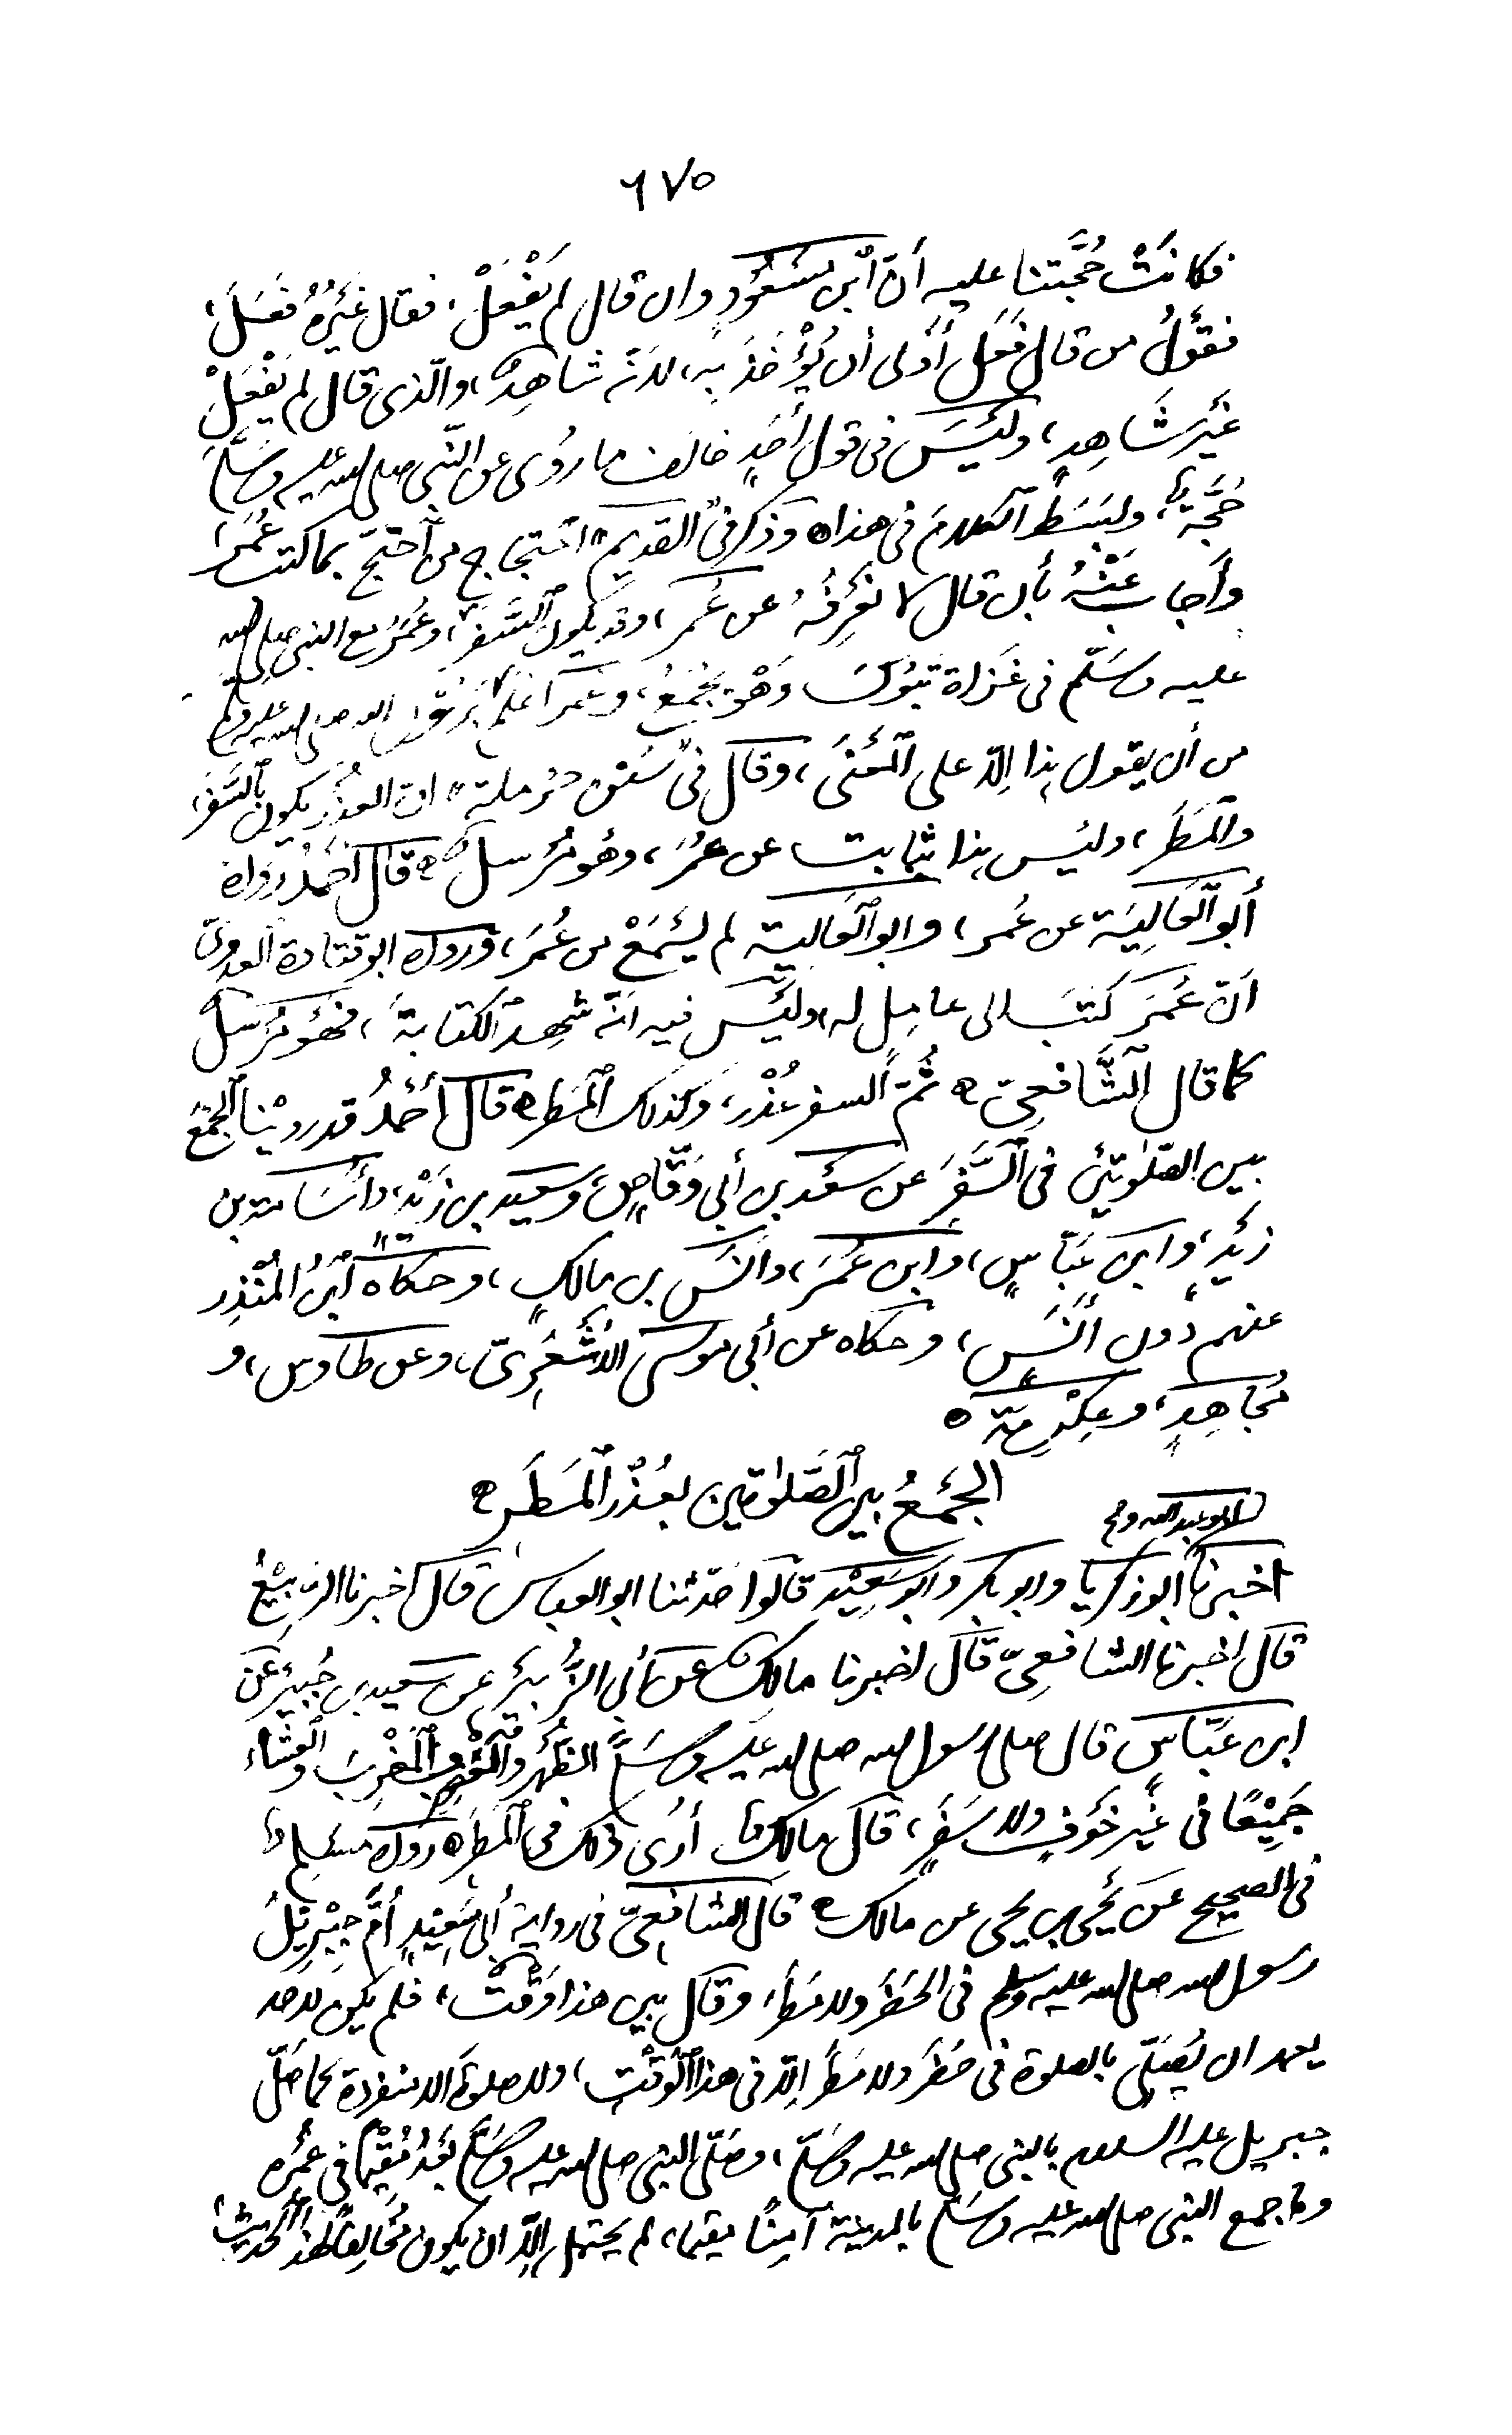 ٦٧٥
فكانَتْ حُجَّتنا عليه أنّ ٱبْن مَسْعُودٍ وان قال لم يَفْعَلْ، فقال غَيْرُهُ فَعَلَ،
فَقَوْلُ من قال فَعَل أَوْلى أن يُؤْخَذَ بِهِ، لأنّه شاهِدٌ، والّذى قال لم يَفْعَلْ
غَيْر شَاهِدٍ، ولَيْسَ فى قول أحَدٍ خالف ما رُوِى عن النّبى صلى الله عليه وسَلّم
حُجَّةٌ، وبَسَطَ ٱلكلامَ فى هذا ه وذكر فى القديم احتجاج من ٱحْتَجّ بما كتب عُمَرُ،
وأَجاب عَنْهُ بأن قال لا نَعْرِفُهُ عن عُمَر، وقد يكون ٱلسَّفَر، وعُمَرُ مع النبى صلى الله
عليه وسَلّم فى غَزاة تَبُوكَ وَهْو يَجْمَعُ، وعُمر أَعْلَم بِرسول الله صلى الله عليه وسلم
من أن يقول هذا إلّا على ٱلْمَعْنَى، وقال فى سُنَن حَرْملة، ان العُذْر يكون بٱلسَّفَر،
والمَطَر، وليس هذا بثابت عن عمُرَ، وهُو مُرْسل ه قال أحْمَدُ رواه
أَبو ٱلْعالِيَة عن عُمر، وابو ٱلْعالية لم يَسْمَعْ من عُمَرَ، ورواه ابو قتادة ٱلعدوىّ
انّ عُمَرَ كتبَ الى عامِل له، ولَيْس فيه انّه شَهِدَ ٱلكتابةَ، فَهُو مُرْسلٌ
كما قال ٱلشَّافعىّ ه ثُمّ السفر عُذْر، وكذلك ٱلْمَطر ه قال أحْمَدُ قد روَيْنا ٱلجَمْعَ
بين الصّلوٰتَيْن فى ٱلسَّفَر عن سَعْد بن أبى وَقّاصٍ، وسعيد بن زَيْدٍ، وأسَامة بن
زَيْدٍ، وابن عَبّاسٍ، وابن عُمَرَ، وانَس بن مالكٍ، وحكاه ٱبْنُ المُنْذِر
عنهم دُون أَنَسٍ، وحكاه عن أبى موسى الاشْعَرىّ، وعن طاوس، و
مُجَاهِدٍ، وعِكْرِمَة ه
الجَمْعُ بين ٱلصَّلوٰتين بعُذْر ٱلمَطَر ه
ابو عبد الله و
اخبرنا أبو زكريا وابو بكر وابو سَعِيْد قالوا حَدّثنا ابو العباس قال اخبرنا الرَّبِيْعُ
قال اخبرنا الشافعىّ قَال اخبرنا مالك عن أبى الزُّبَيْر عن سعيد بن جُبَيْر عَن
ابن عَبّاسٍ قال صلى رسول الله صلى الله عليه وسَلّم الظُّهْر والْعَصْر والمَغْرِبَ والعشاء
جَمِيْعًا فى غَيْر خَوْفٍ ولا سَفَرٍ، قال مالك أُرَى ذلك فى ٱلْمَطَر ه رواه مُسْلِم
فى الصحيح عن يَحْيى بن يحيى عن مالك ه قال الشافعىّ فى رواية أبى سَعِيْدٍ أَمَّ جِبْرِيْلُ
رسول الله صلى الله عليه وسلم فى الحَضَر ولا مَطَر، وقال بين هذا وَقْتٌ، فلم يكن لاحد
يعمد ان يُصَلّى بالصلوة فى حَضَر ولا مَطَر إلّا فى هذا ٱلْوَقْت، ولا صلوة الا منفردة كما صلّى
جبريل عليه السلام بالنبى صلى الله عليه وسَلّم، وصلّى النبى صلى الله عليه وسَلّم بَعْدُ مُقِيْمًا فى عُمُره
ولما جمع النبى صلى الله عليه وسَلّم بالمدينة آمِنًا مقيما، لم يحتمل إلّا ان يكون مُخالِفًا لهذا ٱلحديث